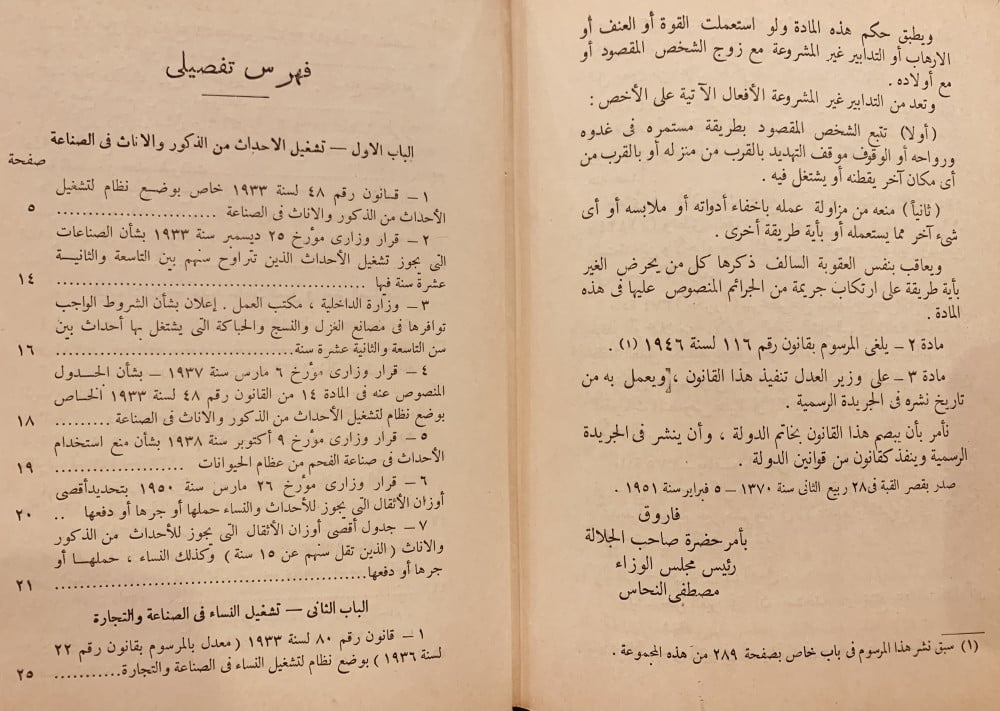 ويطبق حكم هذه المادة ولو استعملت القوة أو العنف أو
الارهاب أو التدابير غير المشروعة مع زوج الشخص المقصود أو
مع أولاده .
وتعد من التدابير غير المشروعة الأفعال الآتية على الأخص :
( أولا ) تتبع الشخص المقصود بطريقة مستمره فى غدوه
ورواحه أو الوقوف موقف التهديد بالقرب من منزله أو بالقرب من
أى مكان آخر يقطنه أو يشتغل فيه .
( ثانياً ) منعه من مزاولة عمله باخفاء أدواته أو ملابسه أو أى
شىء آخر مما يستعمله أو بأية طريقة أخرى .
ويعاقب بنفس العقوبة السالف ذكرها كل من يحرض الغير
بأية طريقة على ارتكاب جريمة من الجرائم المنصوص عليها فى هذه
المادة .
مادة ٢ – يلغى المرسوم بقانون رقم ١١٦ لسنة ١٩٤٦ (١) .
مادة ٣ – على وزير العدل تنفيذ هذا القانون ، ويعمل به من
تاريخ نشره فى الجريدة الرسمية .
نأمر بأن يبصم هذا القانون بخاتم الدولة ، وأن ينشر فى الجريدة
الرسمية وينفذ كقانون من قوانين الدولة .
صدر بقصر القبة فى ٢٨ ربيع الثانى سنة ١٣٧٠ – ٥ فبراير سنة ١٩٥١ .
فاروق
بأمر حضرة صاحب الجلالة
رئيس مجلس الوزراء
مصطفى النحاس
(١) سبق نشر هذا المرسوم فى باب خاص بصفحة ٢٨٩ من هذه المجموعة .
فهرس تفصيلى
الباب الاول – تشغيل الاحداث من الذكور والاناث فى الصناعة
صفحة
١ – قانون رقم ٤٨ لسنة ١٩٣٣ خاص بوضع نظام لتشغيل
الأحداث من الذكور والاناث فى الصناعة ........................ ٥
٢ – قرار وزارى مؤرخ ٢٥ ديسمبر سنة ١٩٣٣ بشأن الصناعات
التى يجوز تشغيل الأحداث الذين تتراوح سنهم بين التاسعة والثانية
عشرة سنة فيها ........................ ١٤
٣ – وزارة الداخلية ، مكتب العمل . إعلان بشأن الشروط الواجب
توافرها فى مصانع الغزل والنسج والحباكة التى يشتغل بها أحداث بين
سن التاسعة والثانية عشرة سنة........................ ١٦
٤ – قرار وزارى مؤرخ ٦ مارس سنة ١٩٣٧ – بشأن الجدول
المنصوص عنه فى المادة ١٤ من القانون رقم ٤٨ لسنة ١٩٣٣ الخاص
بوضع نظام لتشغيل الأحداث من الذكور والاناث فى الصناعة ......... ١٨
٥ – قرار وزارى مؤرخ ٩ أكتوبر سنة ١٩٣٨ بشأن منع استخدام
الأحداث فى صناعة الفحم من عظام الحيوانات ..................... ١٩
٦ – قرار وزارى مؤرخ ٢٦ مارس سنة ١٩٥٠ بتحديد أقصى
أوزان الأثقال التى يجوز للأحداث والنساء حملها أو جرها أو دفعها .. ٢٠
٧ – جدول أقصى أوزان الأثقال التى يجوز للأحداث من الذكور
والاناث ( الذين تقل سنهم عن ١٥ سنة ) وكذلك النساء ، حملها أو
جرها أو دفعها........................ ٢١
الباب الثانى – تشغيل النساء فى الصناعة والتجارة
١ – قانون رقم ٨٠ لسنة ١٩٣٣ ( معدل بالمرسوم بقانون رقم ٢٢
لسنة ١٩٣٦ ) بوضع نظام لتشغيل النساء فى الصناعة والتجارة............ ٢٥